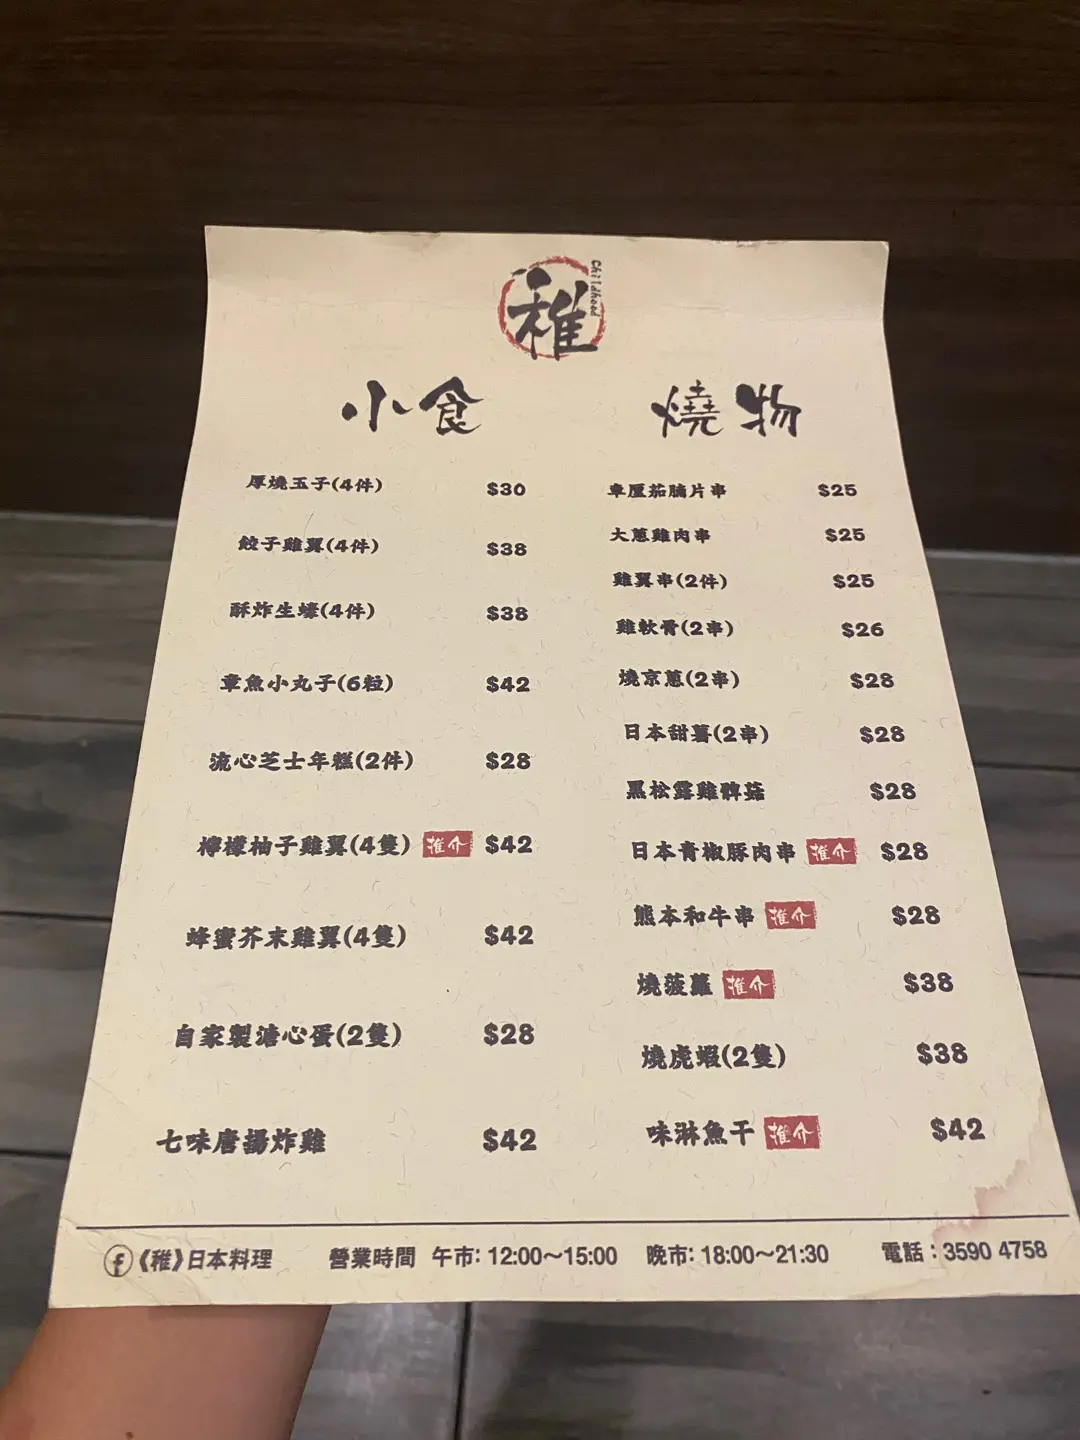 稚
Childhood
小食
厚燒玉子(4件) $30
餃子雞翼(4件) $38
酥炸生蠔(4件) $38
章魚小丸子(6粒) $42
流心芝士年糕(2件) $28
檸檬柚子雞翼(4隻) 推介 $42
蜂蜜芥末雞翼(4隻) $42
自家製溏心蛋(2隻) $28
七味唐揚炸雞 $42
燒物
車厘茄腩片串 $25
大蔥雞肉串 $25
雞翼串(2件) $25
雞軟骨(2串) $26
燒京蔥(2串) $28
日本甜薯(2串) $28
黑松露雞髀菇 $28
日本青椒豚肉串 推介 $28
熊本和牛串 推介 $28
燒菠蘿 推介 $38
燒虎蝦(2隻) $38
味淋魚干 推介 $42
《稚》日本料理 營業時間 午市: 12:00～15:00 晚市: 18:00～21:30 電話：3590 4758